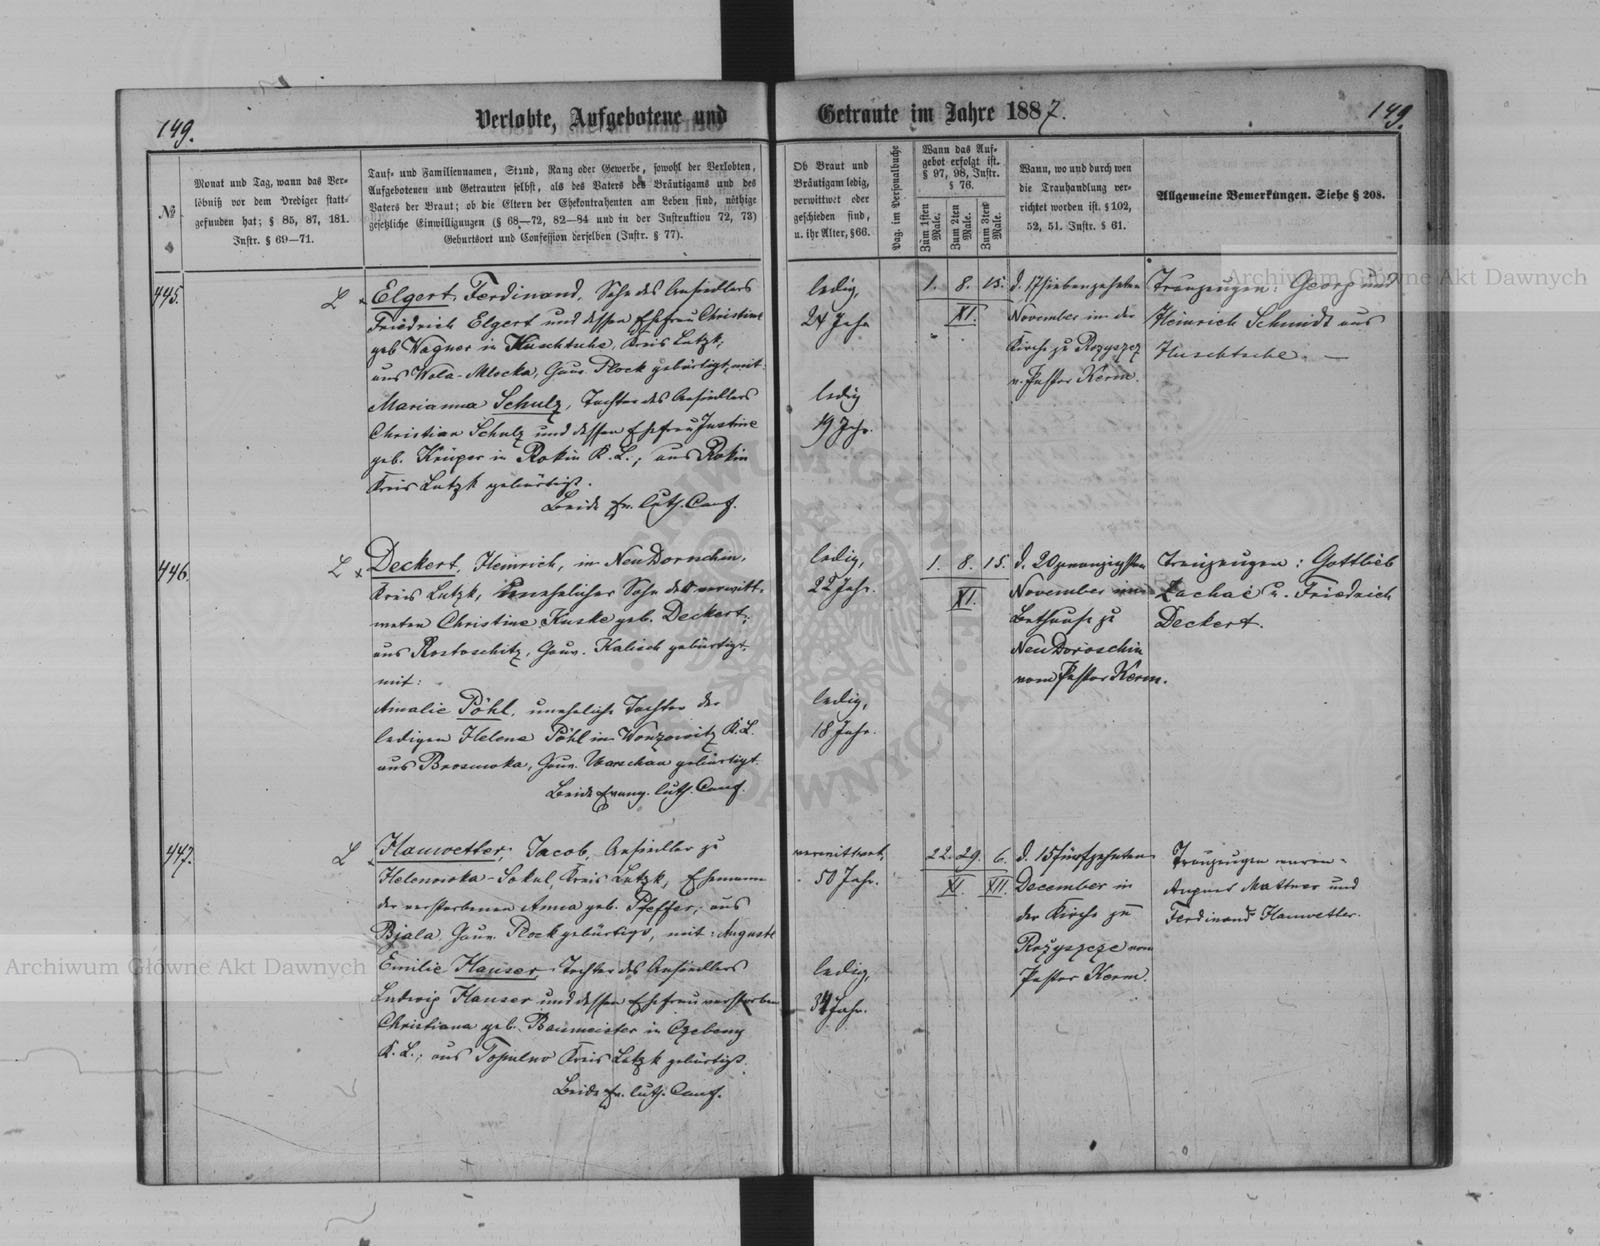 149.
Verlobte, Aufgebotene und
Getraute im Jahre 1887.
149.
№
Monat und Tag, wann das Ver-
löbniß vor dem Prediger statt-
gefunden hat; § 85, 87, 181.
Instr. § 69—71.
Tauf- und Familiennamen, Stand, Rang oder Gewerbe, sowohl der Verlobten,
Aufgebotenen und Getrauten selbst, als des Vaters des Bräutigams und des
Vaters der Braut; ob die Eltern der Ehekontrahenten am Leben sind, nöthige
gesetzliche Einwilligungen (§ 68—72, 82—84 und in der Instruktion 72, 73)
Geburtsort und Confession derselben (Instr. § 77).
Ob Braut und
Bräutigam ledig,
verwittwet oder
geschieden sind,
u. ihr Alter, § 66.
Pag. im Personalbuche
Wann das Auf-
gebot erfolgt ist.
§ 97, 98, Instr.
§ 76.
Zum 1sten Male.
Zum 2ten Male.
Zum 3ten Male.
Wann, wo und durch wen
die Trauhandlung ver-
richtet worden ist. § 102,
52, 51. Instr. § 61.
Allgemeine Bemerkungen. Siehe § 208.
445.
L
Elgert, Ferdinand, Sohn des Ansiedlers
Friedrich Elgert und dessen Ehefrau Christine
geb Wagner in Huschtsche, Kreis Lutzk,
aus Wola-Mlocka, Gouv. Plock gebürtigt, mit
Marianna Schulz, Tochter des Ansiedlers
Christian Schulz und dessen Ehefrau Justine
geb. Krüger in Rokin K. L.; aus Rokin
Kreis Lutzk gebürtigt.
Beide ev. luth. Conf.
ledig,
24 Jahr
ledig
19 Jahr.
1. 8. 15.
XI.
d. 17 siebenzehnten
November in der
Kirche zu Rozyszcz
v. Pastor Kerm.
Trauzeugen: Georg und
Heinrich Schmidt aus
Huschtsche. —
446.
L
Deckert, Heinrich, in Neu Dorschin,
Kreis Lutzk, unehelicher Sohn der verwitt-
weten Christine Kuske geb. Deckert;
aus Rostoschitz, Gouv. Kalisch gebürtigt,
mit:
Amalie Pöhl, uneheliche Tochter der
ledigen Helene Pöhl in K. L.
aus Gouv. Warschau gebürtigt.
Beide Evang. luth. Conf.
ledig,
22 Jahr.
ledig,
18 Jahr.
1. 8. 15.
XI.
d. 20 zwanzigsten
November im
Bethause zu
Neu Doroschin
vom Pastor Kerm.
Trauzeugen: Gottlieb
Zachai u. Friedrich
Deckert.
447.
L
Hauwetter, Jacob, Ansiedler zu
Helenowka-Sokul, Kreis Lutzk, Ehemann
der verstorbenen Anna geb. Pfeffer, aus
Bjala, Gouv. Plock gebürtigt, mit: Auguste
Emilie Hauser, Tochter des Ansiedlers
Ludwig Hauser und dessen Ehefrau verstorben
Christiana geb. Baumeister in
K. L.; aus Topulno Kreis Lutzk gebürtigt.
Beide ev. luth. Conf.
verwittwet,
50 Jahr.
ledig,
34 Jahr.
22. 29. 6.
XI. XII.
d. 15 fünfzehnten
December in
der Kirche zu
Rożyszcze vom
Pastor Kerm.
Trauzeugen waren:
August Mattner und
Ferdinand Hauwetter.
Archiwum Główne Akt Dawnych
Archiwum Główne Akt Dawnych